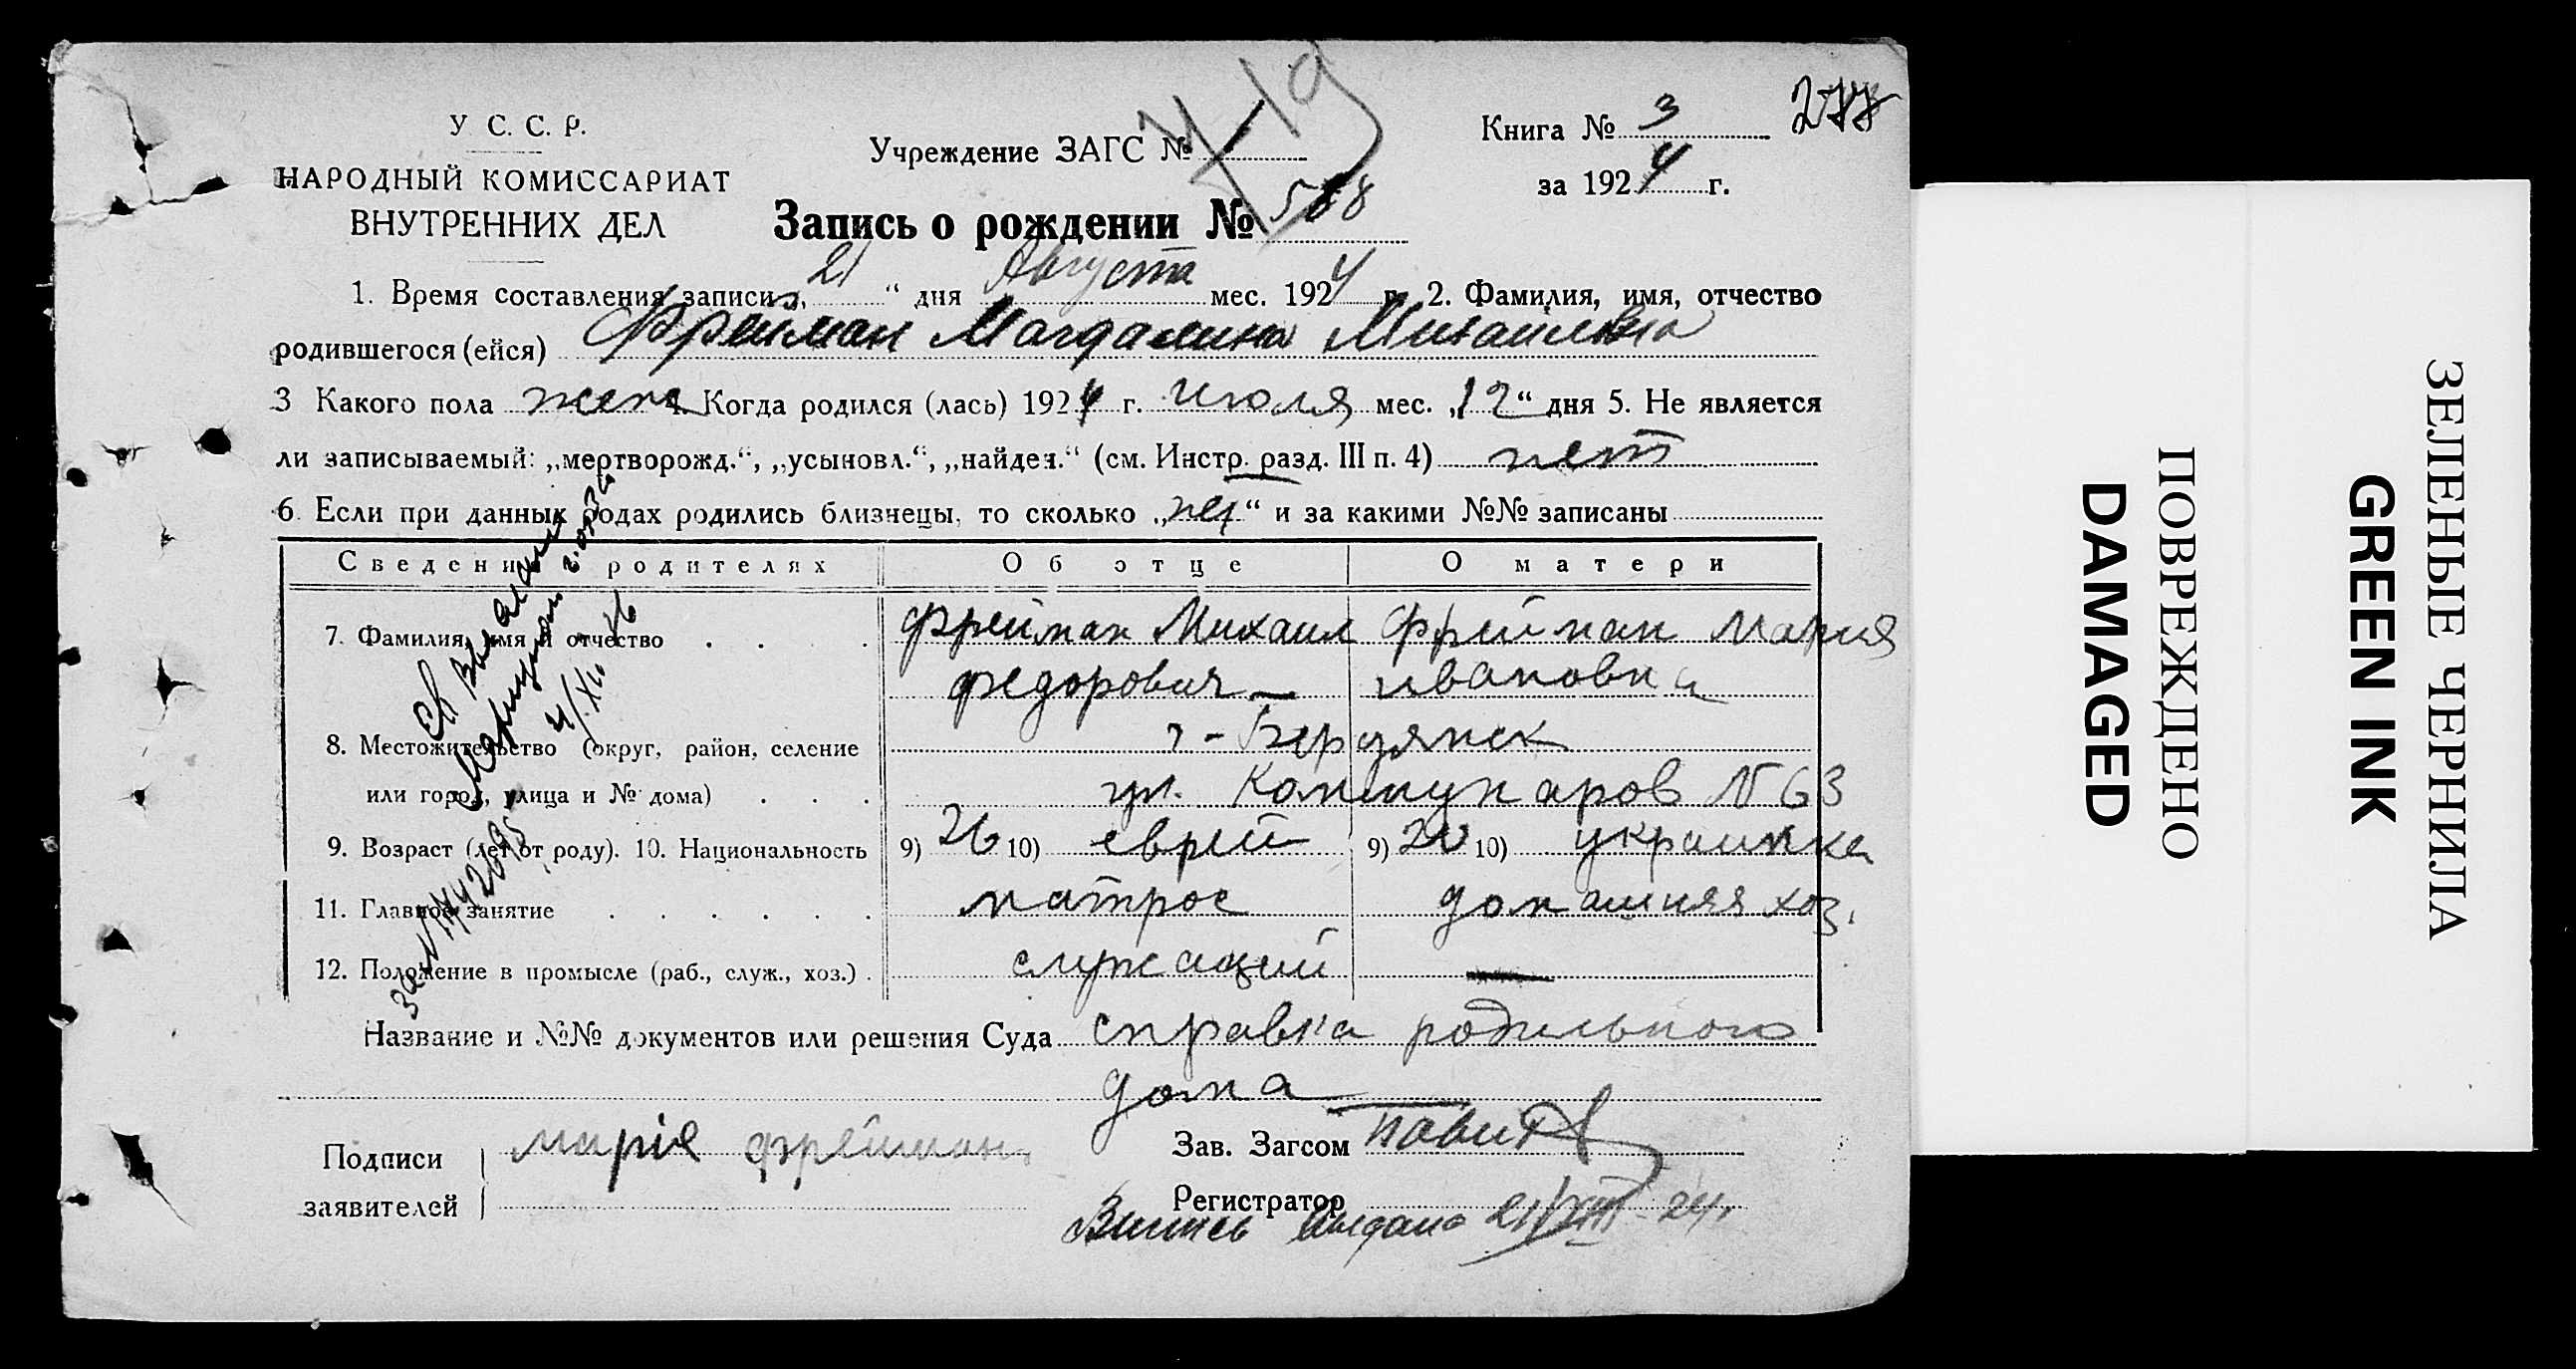 277
У. С. С. Р.
НАРОДНЫЙ КОМИССАРИАТ
ВНУТРЕННИХ ДЕЛ
Учреждение ЗАГС №
Книга № 3
за 1924 г.
Запись о рождении № 588
1. Время составления записи „21“ дня Августа мес. 1924 г. 2. Фамилия, имя, отчество
родившегося (ейся) Фрейман Магдалина Михайловна
3 Какого пола жен 4. Когда родился (лась) 1924 г. июля мес. „12“ дня 5. Не является
ли записываемый: „мертворожд.“, „усыновл.“, „найден.“ (см. Инстр. разд. III п. 4) нет
6. Если при данных родах родились близнецы, то сколько „нет“ и за какими №№ записаны
Сведения о родителях Об отце О матери
7. Фамилия, имя и отчество . . . . Фрейман Михаил Фрейман Мария
федорович ивановна
8. Местожительство (округ, район, селение г - Бердянск
или город, улица и № дома) . . . ул. Коммунаров N 63
9. Возраст (лет от роду). 10. Национальность 9) 26 10) еврей 9) 20 10) украинка
11. Главное занятие . . . . . . матрос домашняя хоз.
12. Положение в промысле (раб., служ., хоз.) . служащий —
Название и №№ документов или решения Суда справка родильного
дома
Подписи марія фрейман
заявителей
Зав. Загсом
Регистратор
Выпись выдана 21/VIII - 24.
ПОВРЕЖДЕНО
DAMAGED
ЗЕЛЕНЫЕ ЧЕРНИЛА
GREEN INK